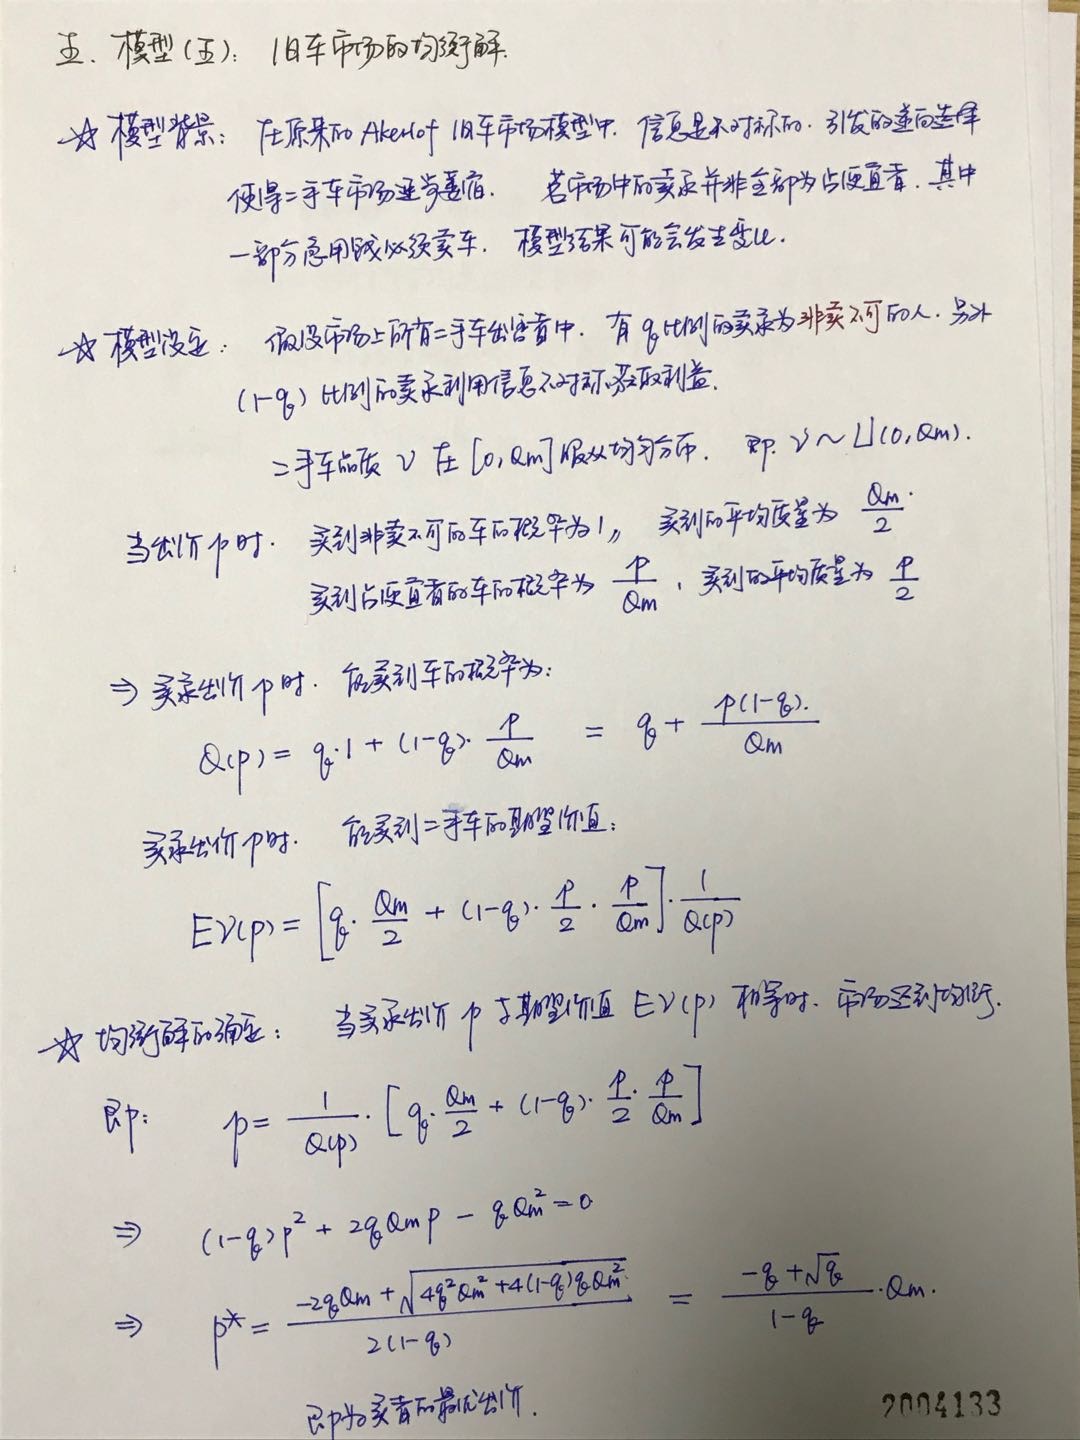 五、模型(五): 旧车市场的均衡解.
☆ 模型背景: 在原来的 Akerlof 旧车市场模型中, 信息是不对称的, 引发的逆向选择
使得二手车市场逐步萎缩. 若市场中的卖家并非全部为占便宜者, 其中
一部分急用钱必须卖车, 模型结果可能会发生变化.
☆ 模型设定: 假设市场上所有二手车出售者中, 有 q 比例的卖家为非卖不可的人, 另外
(1-q) 比例的卖家利用信息不对称谋取利益.
二手车品质 ν 在 [0, Qm] 服从均匀分布, 即. ν ~ U(0, Qm).
当出价 p 时. 买到非卖不可的车的概率为1, 买到的平均质量为 Qm/2.
买到占便宜者的车的概率为 p/Qm, 买到的平均质量为 p/2
⇒ 买家出价 p 时. 能买到车的概率为:
Q(p) = q·1 + (1-q)· p/Qm = q + p(1-q)/Qm
买家出价 p 时. 能买到二手车的期望价值:
Eν(p) = [q· Qm/2 + (1-q)· p/2 · p/Qm]· 1/Q(p)
☆ 均衡解的确定: 当买家出价 p 与期望价值 Eν(p) 相等时, 市场达到均衡.
即: p = 1/Q(p) · [q· Qm/2 + (1-q)· p/2 · p/Qm]
⇒ (1-q)p² + 2qQmp - qQm² = 0
⇒ p* = (-2qQm + √(4q²Qm² + 4(1-q)qQm²)) / 2(1-q) = (-q + √q)/(1-q) · Qm.
即为买者的最优出价.
2004133